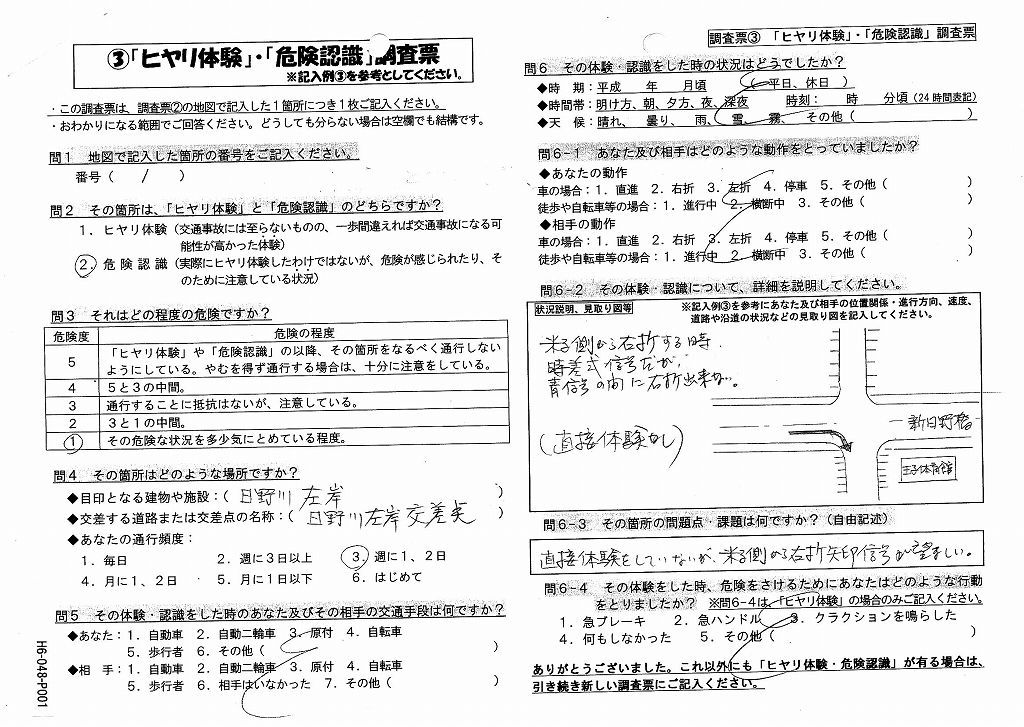 ③「ヒヤリ体験」・「危険認識」調査票
※記入例③を参考としてください。
・この調査票は、調査票②の地図で記入した1箇所につき1枚ご記入ください。
・おわかりになる範囲でご回答ください。どうしても分らない場合は空欄でも結構です。
問1 地図で記入した箇所の番号をご記入ください。
番号（ / ）
問2 その箇所は、「ヒヤリ体験」と「危険認識」のどちらですか？
1．ヒヤリ体験（交通事故には至らないものの、一歩間違えれば交通事故になる可
能性が高かった体験）
2．危険認識（実際にヒヤリ体験したわけではないが、危険が感じられたり、そ
のために注意している状況）
問3 それはどの程度の危険ですか？
危険度 危険の程度
5 「ヒヤリ体験」や「危険認識」の以降、その箇所をなるべく通行しない
ようにしている。やむを得ず通行する場合は、十分に注意をしている。
4 5と3の中間。
3 通行することに抵抗はないが、注意している。
2 3と1の中間。
1 その危険な状況を多少気にとめている程度。
問4 その箇所はどのような場所ですか？
◆目印となる建物や施設：（ 日野川 左岸 ）
◆交差する道路または交差点の名称：（ 日野川左岸交差点 ）
◆あなたの通行頻度：
1．毎日 2．週に3日以上 3．週に1、2日
4．月に1、2日 5．月に1日以下 6．はじめて
問5 その体験・認識をした時のあなた及びその相手の交通手段は何ですか？
◆あなた：1．自動車 2．自動二輪車 3．原付 4．自転車
5．歩行者 6．その他（ ）
◆相 手：1．自動車 2．自動二輪車 3．原付 4．自転車
5．歩行者 6．相手はいなかった 7．その他（ ）
H6-048-P001
調査票③ 「ヒヤリ体験」・「危険認識」調査票
問6 その体験・認識をした時の状況はどうでしたか？
◆時 期：平成 年 月頃 （ 平日、休日 ）
◆時間帯：明け方、朝、夕方、夜、深夜 時刻： 時 分頃（24時間表記）
◆天 候：晴れ、 曇り、 雨、 雪、 霧、 その他（ ）
問6-1 あなた及び相手はどのような動作をとっていましたか？
◆あなたの動作
車の場合：1．直進 2．右折 3．左折 4．停車 5．その他（ ）
徒歩や自転車等の場合：1．進行中 2．横断中 3．その他（ ）
◆相手の動作
車の場合：1．直進 2．右折 3．左折 4．停車 5．その他（ ）
徒歩や自転車等の場合：1．進行中 2．横断中 3．その他（ ）
問6-2 その体験・認識について、詳細を説明してください。
状況説明、見取り図等
※記入例③を参考にあなた及び相手の位置関係・進行方向、速度、
道路や沿道の状況などの見取り図を記入してください。
米子側から右折する時、
時差式信号だが、
青信号の間に右折出来ない。
（直接体験なし）
新日野橋
王子体育館
問6-3 その箇所の問題点・課題は何ですか？（自由記述）
直接体験をしていないが、米子側から右折矢印信号が望ましい。
問6-4 その体験をした時、危険をさけるためにあなたはどのような行動
をとりましたか？ ※問6-4は、「ヒヤリ体験」の場合のみご記入ください。
1．急ブレーキ 2．急ハンドル 3．クラクションを鳴らした
4．何もしなかった 5．その他（ ）
ありがとうございました。これ以外にも「ヒヤリ体験・危険認識」が有る場合は、
引き続き新しい調査票にご記入ください。